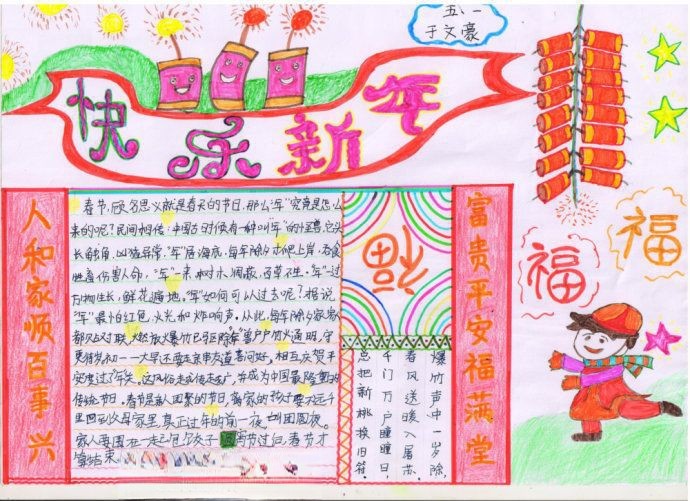 五、一
于文豪
快乐新年
人和家顺百事兴
春节，顾名思义就是春天的节日，那么"年"究竟是怎么
来的呢？民间相传，中国古时候有一种叫"年"的怪兽，它头
长角，凶猛异常，"年"居海底，每年除夕才爬上岸，吞食
牲畜伤害人命，"年"一来，树木凋敝，百草不生，"年"一过
万物生长，鲜花遍地，"年"如何可以过去呢？据说
"年"最怕红色、火光和炸响声，从此，每年除夕家家
都贴对联、燃放爆竹，户户灯火通明，守
更待岁，初一一大早还要走亲串友道喜问好，相互庆贺平
安度过了年关。这风俗，成为中国最隆重的
传统节日。春节是亲人团聚的节日，离家的孩子要不远千
里回到父母家里，真正过年的前一夜，叫团圆夜，
家人要围在一起包饺子，春节才
算结束
福
爆竹声中一岁除，
春风送暖入屠苏。
千门万户瞳瞳日，
总把新桃换旧符。
富贵平安福满堂
福
福